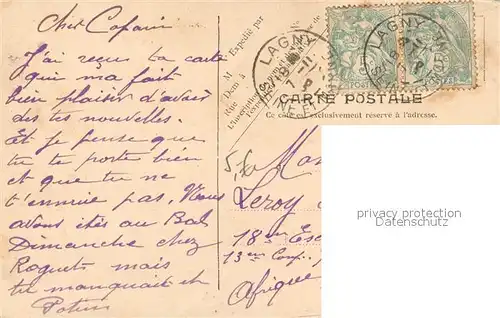 Cher Copain
J'ai reçu ta carte
qui m'a fait
bien plaisir d'avoir
des tes nouvelles.
Et je pense que
tu te porte bien
et que tu ne
t'ennuie pas. Nous
avons étés au Bal
Dimanche chez
Roquets mais
tu manquait et
M Expédié par
Dem à
Rue
LAGNY
SEINE ET
LAGNY
CARTE POSTALE
Ce côté est exclusivement réservé à l'adresse.
Leroy
18em Esc
13em Comp.
Afrique
privacy protection
Datenschutz